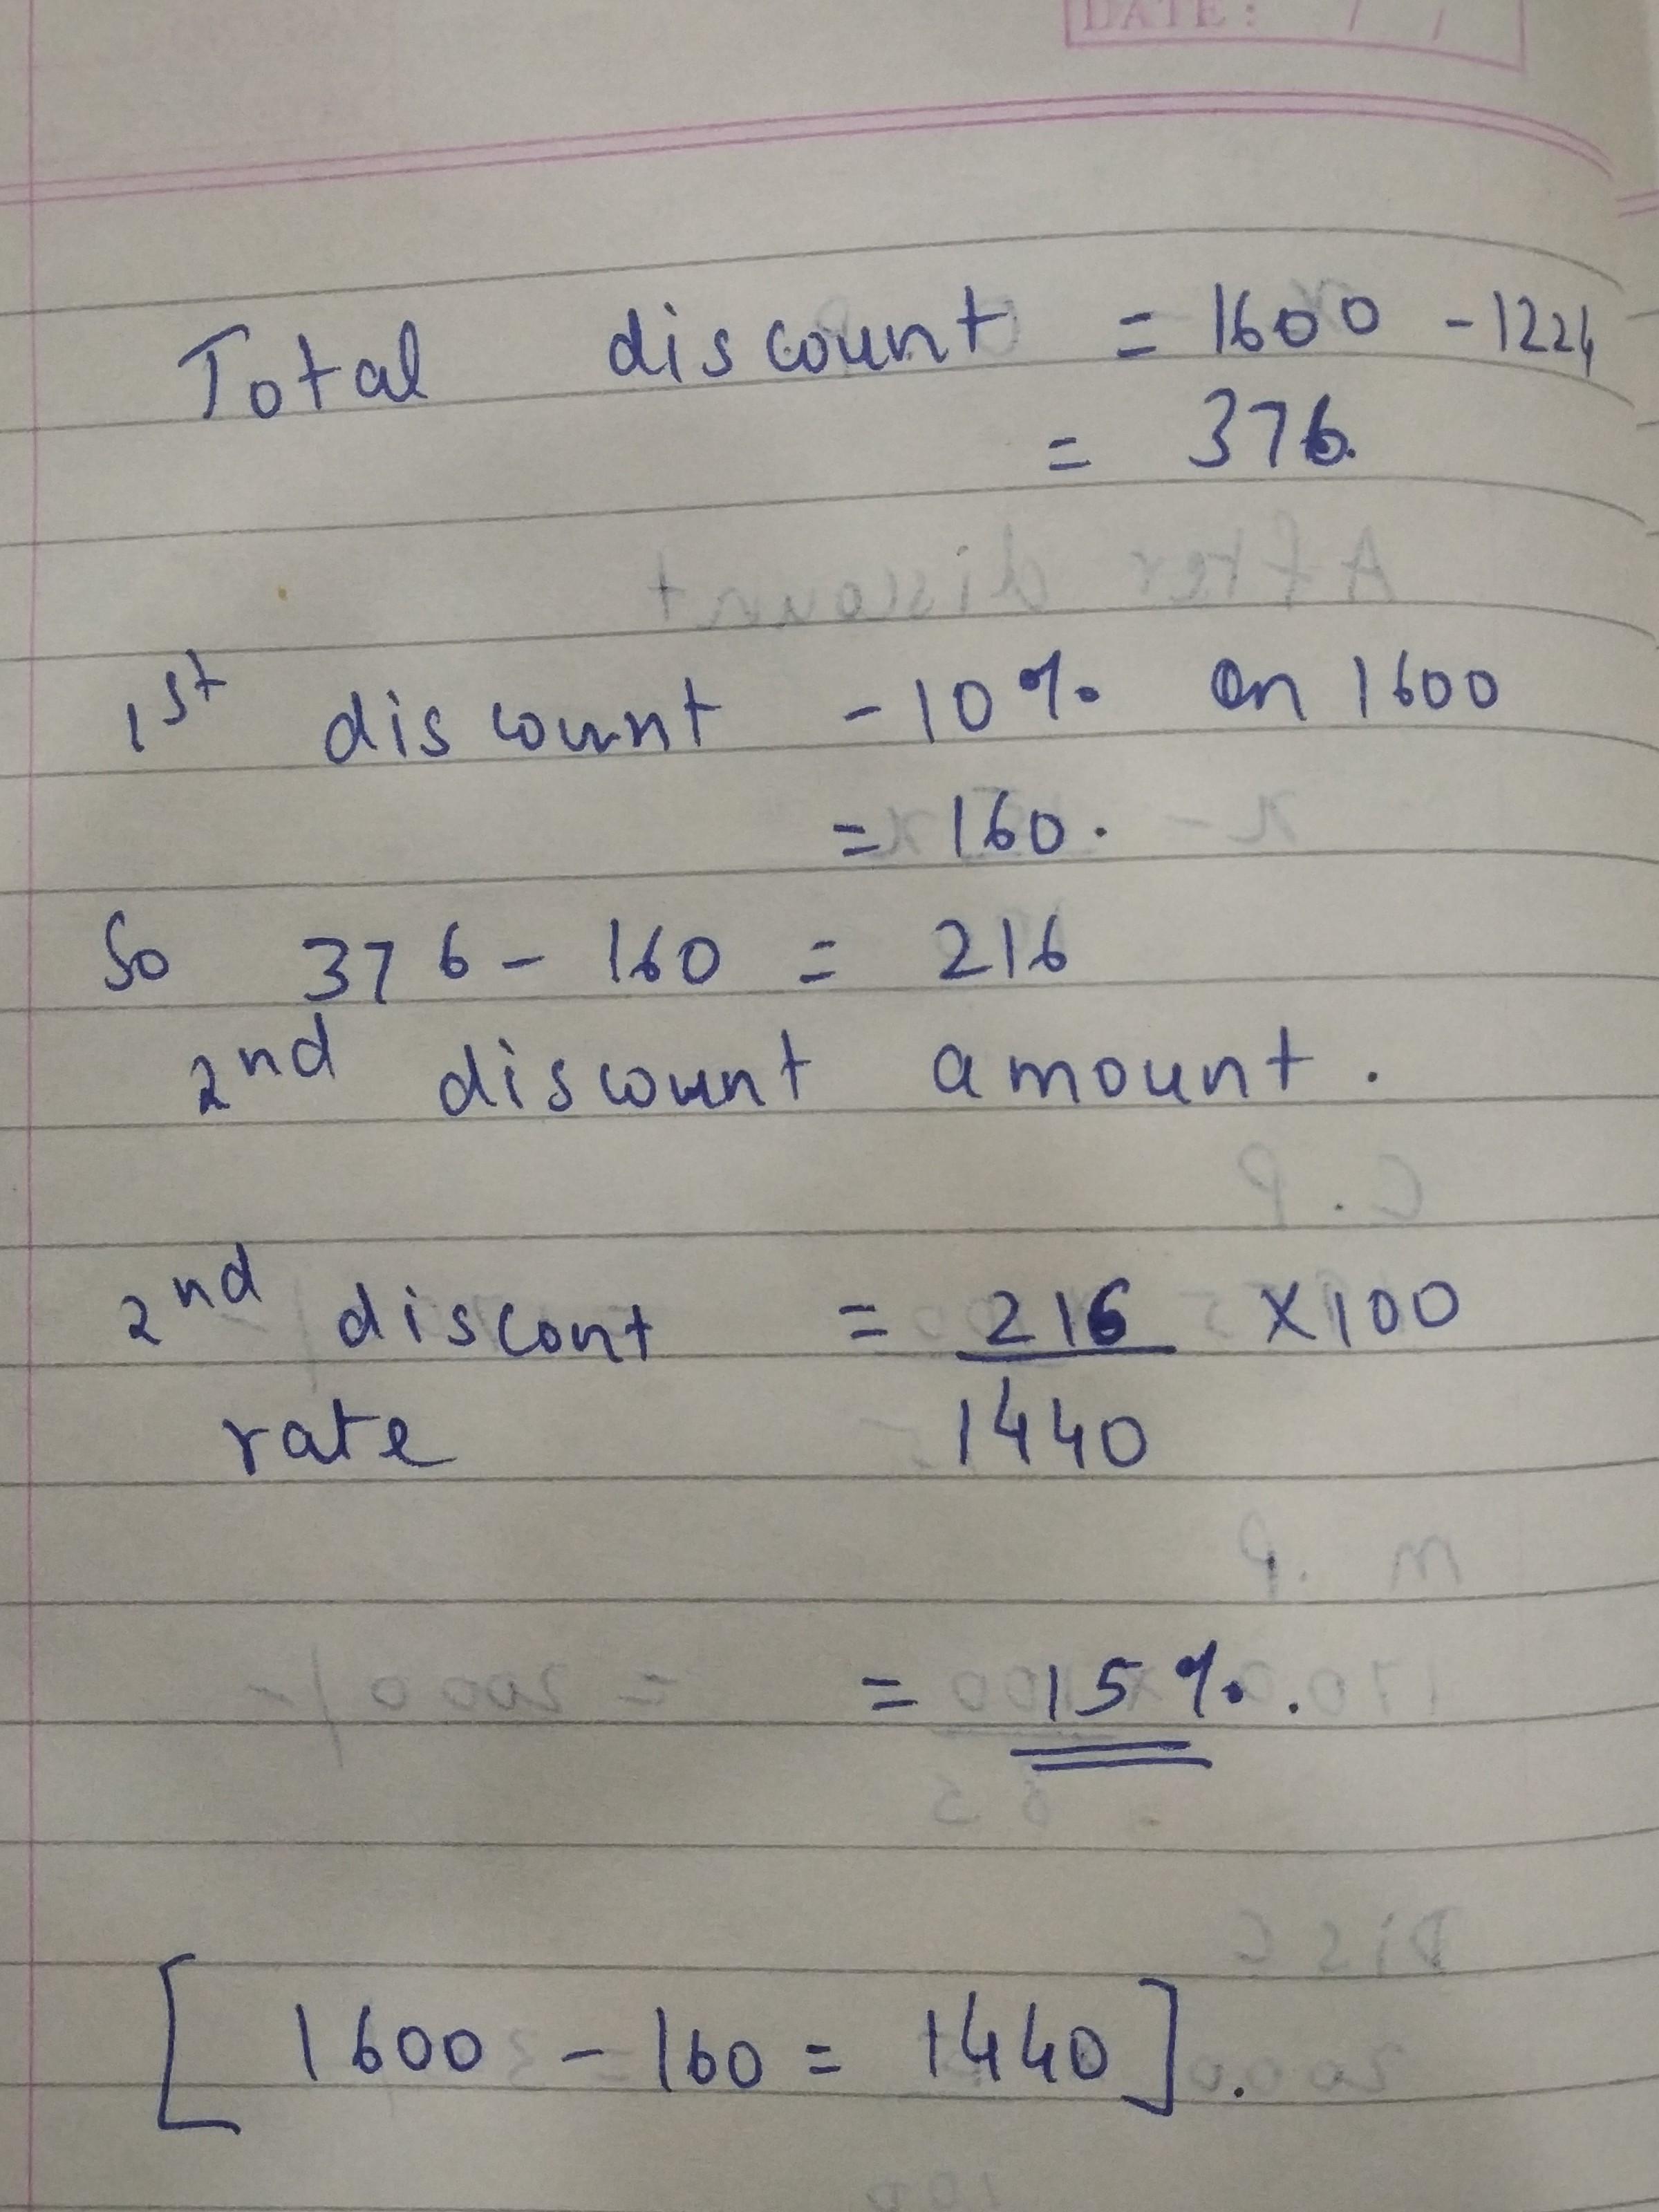 DATE: / /
Total discount = 1600 - 1224
= 376.
1st discount - 10% on 1600
= 160.
So 376 - 160 = 216
2nd discount amount.
2nd discont = 216 × 100
rate 1440
= 15%.
[1600 - 160 = 1440].